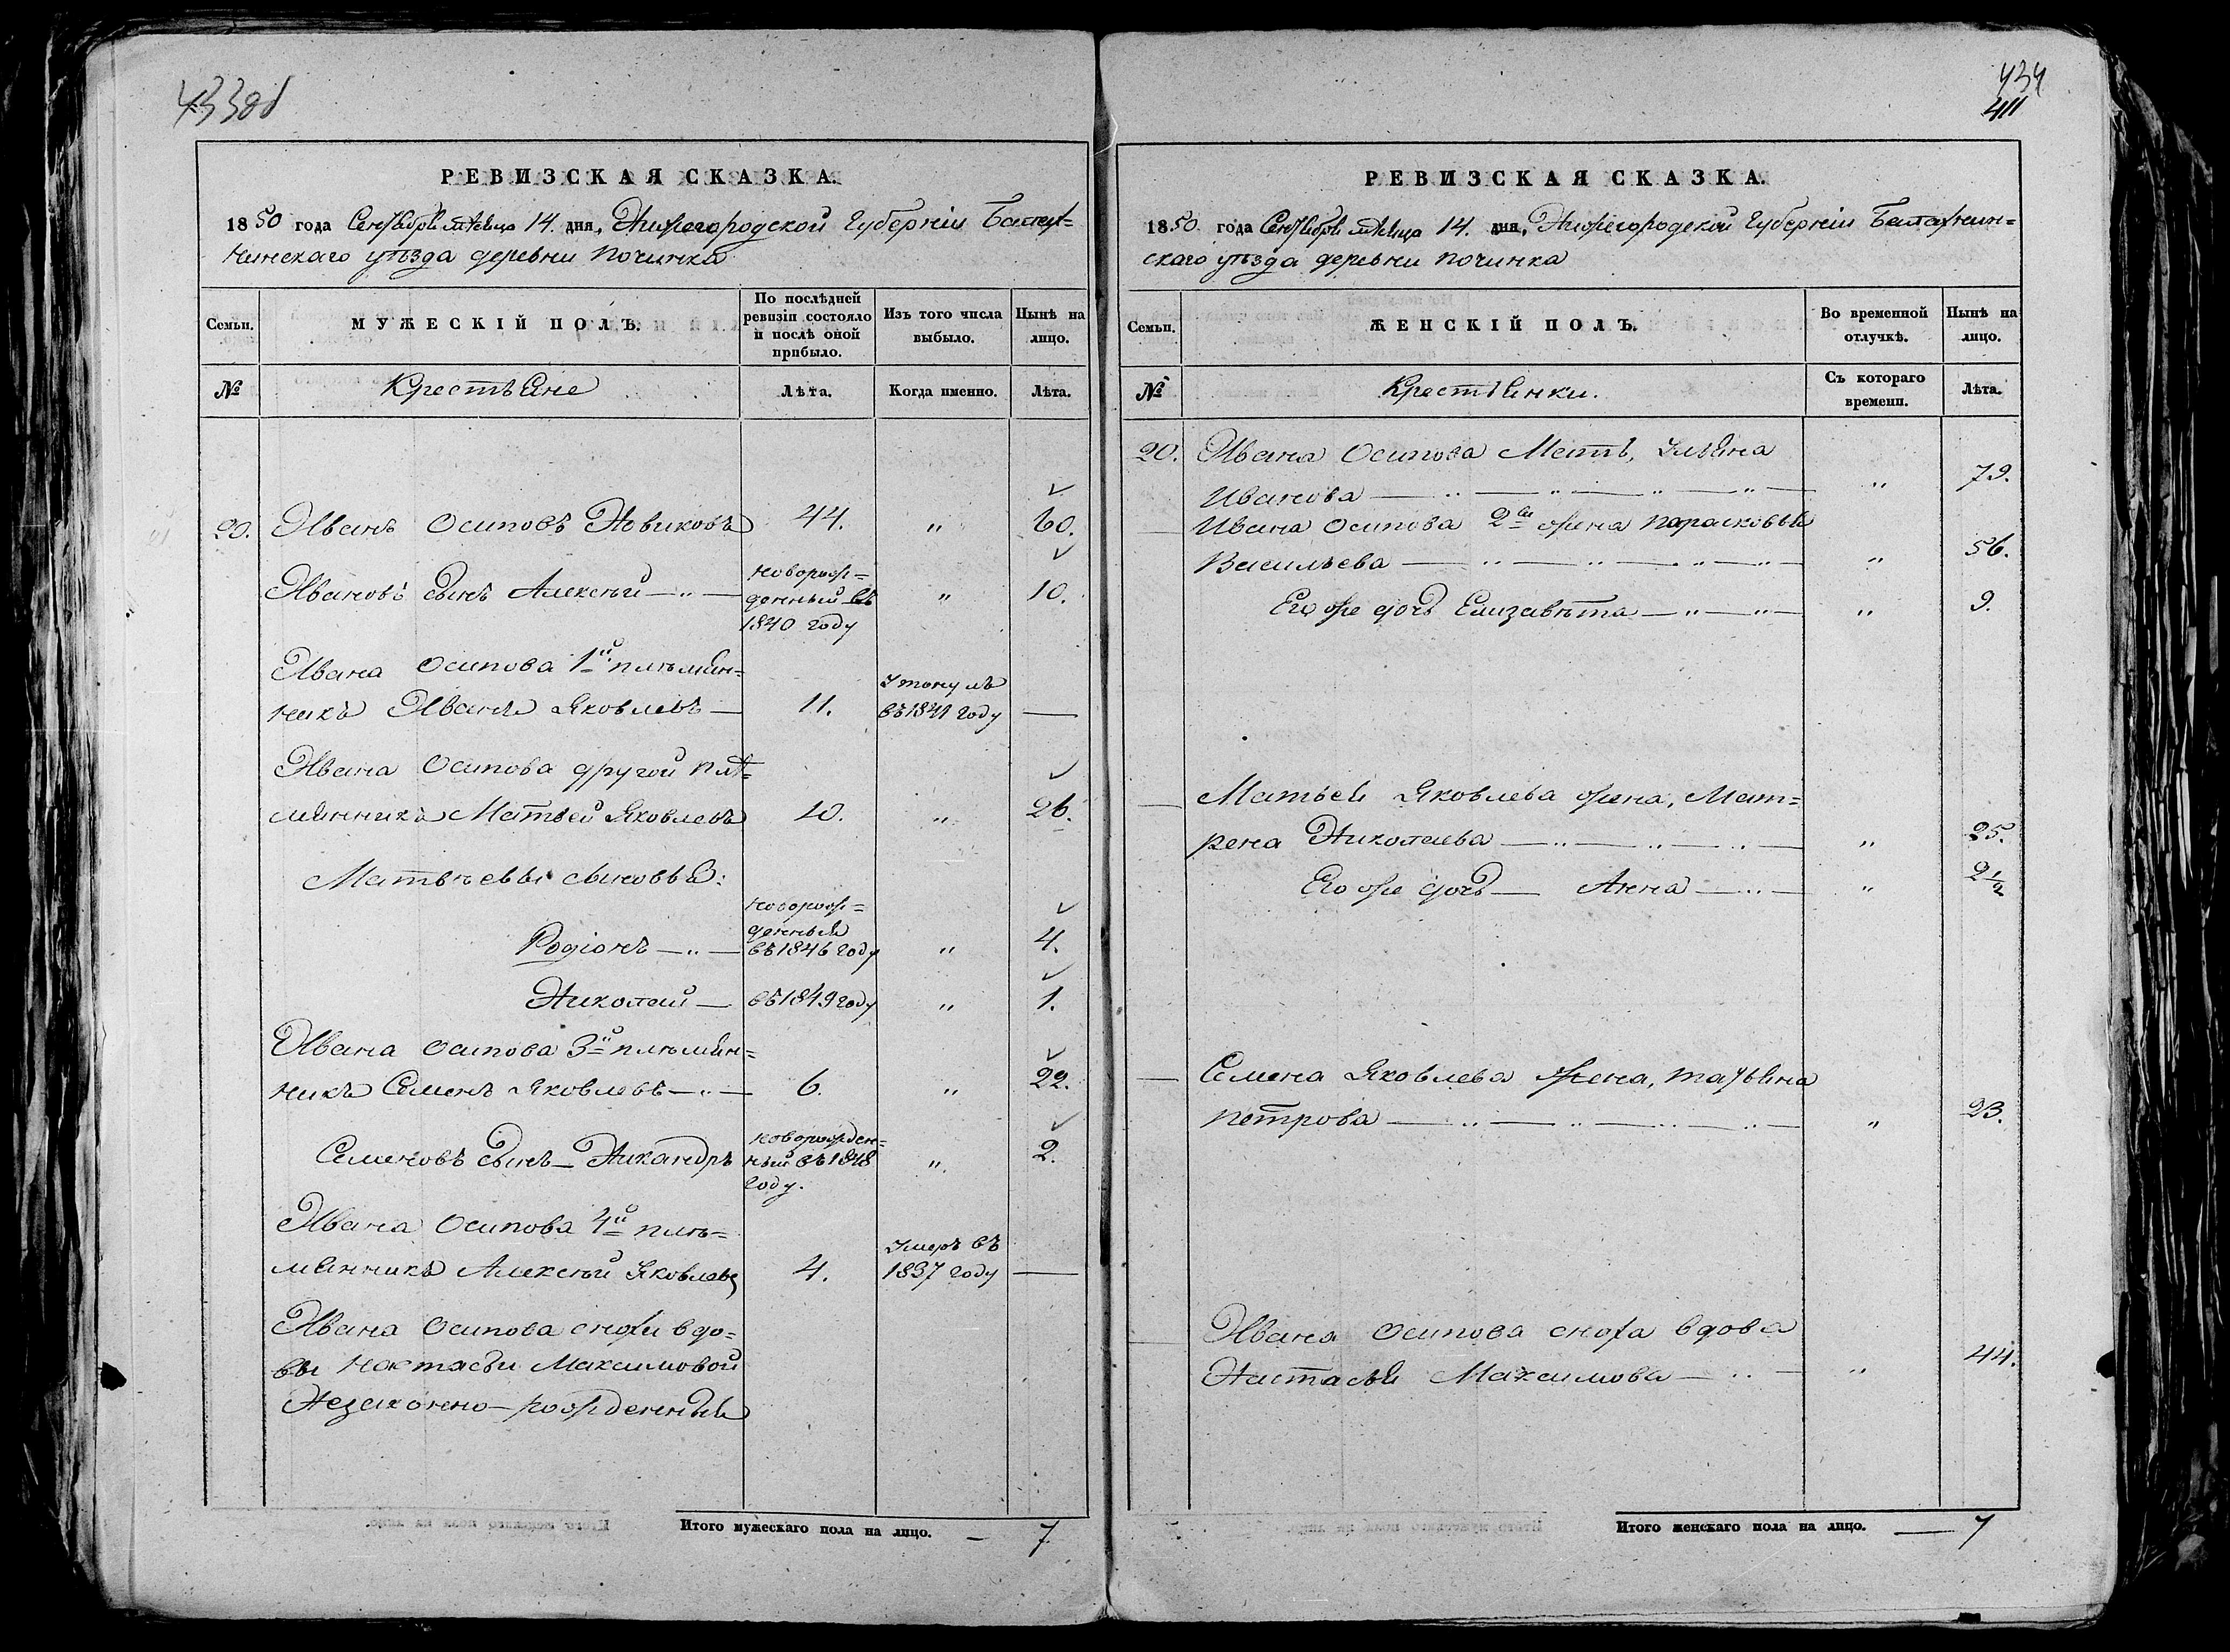 433об
РЕВИЗСКАЯ СКАЗКА.
1850 года Сентября мѣсяца 14. дня, Нижегородской Губерніи Балах-
нинскаго уѣзда деревни Починка
Семьи.
МУЖЕСКІЙ ПОЛЪ.
По послѣдней ревизіи состояло и послѣ оной прибыло.
Изъ того числа выбыло.
Нынѣ на лицо.
№
Крестьяне
Лѣта.
Когда именно.
Лѣта.
20. Иванъ Осиповъ Новиковъ 44. „ 60.
Ивановъ сынъ Алексѣй — „ — новорож=
денный въ „ 10.
1840 году
Ивана Осипова 1й племян=
никъ Иванъ Яковлевъ — 11. Утонулъ
въ 1841 году —
Ивана Осипова другой плѣ=
мянникъ Матвей Яковлевъ 10. „ 26.
Матвѣевы сыновья:
Родіонъ — „ — новорож=
денный
въ 1846 году „ 4.
Николай — въ 1849 году „ 1.
Ивана Осипова 3й племян=
никъ Семенъ Яковлевъ — „ — 6. „ 22.
Семеновъ сынъ — Никандръ новорожден=
ный въ 1848 „ 2.
году.
Ивана Осипова 4й плѣ=
мянникъ Алексѣй Яковлевъ 4. Умеръ въ
1837 году —
Ивана Осипова снохи вдо=
вы Настасьи Максимовой
Незаконно-рожденный
Итого мужескаго пола на лицо. — 7
434
411
РЕВИЗСКАЯ СКАЗКА.
1850 года Сентября мѣсяца 14. дня, Нижегородской Губерніи Балахнин=
скаго уѣзда деревни Починка
Семьи.
ЖЕНСКІЙ ПОЛЪ.
Во временной отлучкѣ.
Нынѣ на лицо.
№
Крестьянки.
Съ котораго времени.
Лѣта.
20. Ивана Осипова Мать, Ульяна
Иванова — „ — „ — „ — „ — „ 79.
— Ивана Осипова 2я жена Парасковья
Васильева — „ — „ — „ — „ — „ 56.
Его же дочь Елизавѣта — „ — „ — „ 9.
— Матвея Яковлева жена, Мат=
рена Николаева — „ — „ — „ — „ 25.
Его же дочь — Анна — „ — „ 2 1/2
— Семена Яковлева жена, Татьяна
Петрова — „ — „ — „ — „ — „ 23.
— Ивана Осипова сноха вдова
Настасья Максимова — „ — „ 44.
Итого женскаго пола на лицо. — 7